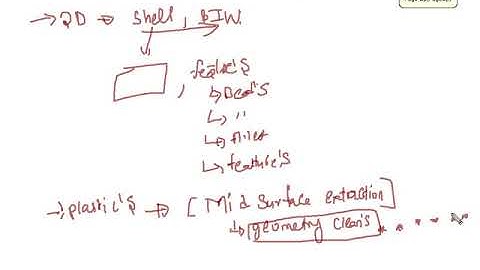 → 2D ⇒ shell, BIW.
, feature's
↳ Bead's
↳ "
↳ fillet
↳ feature's
→ plastic's → [Mid surface extraction]
↳ geometry Clean's